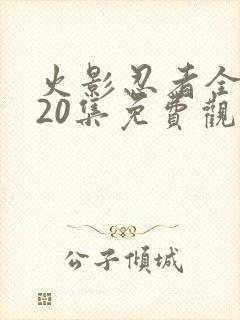 火影忍者全
20集免費觀
公子傾城